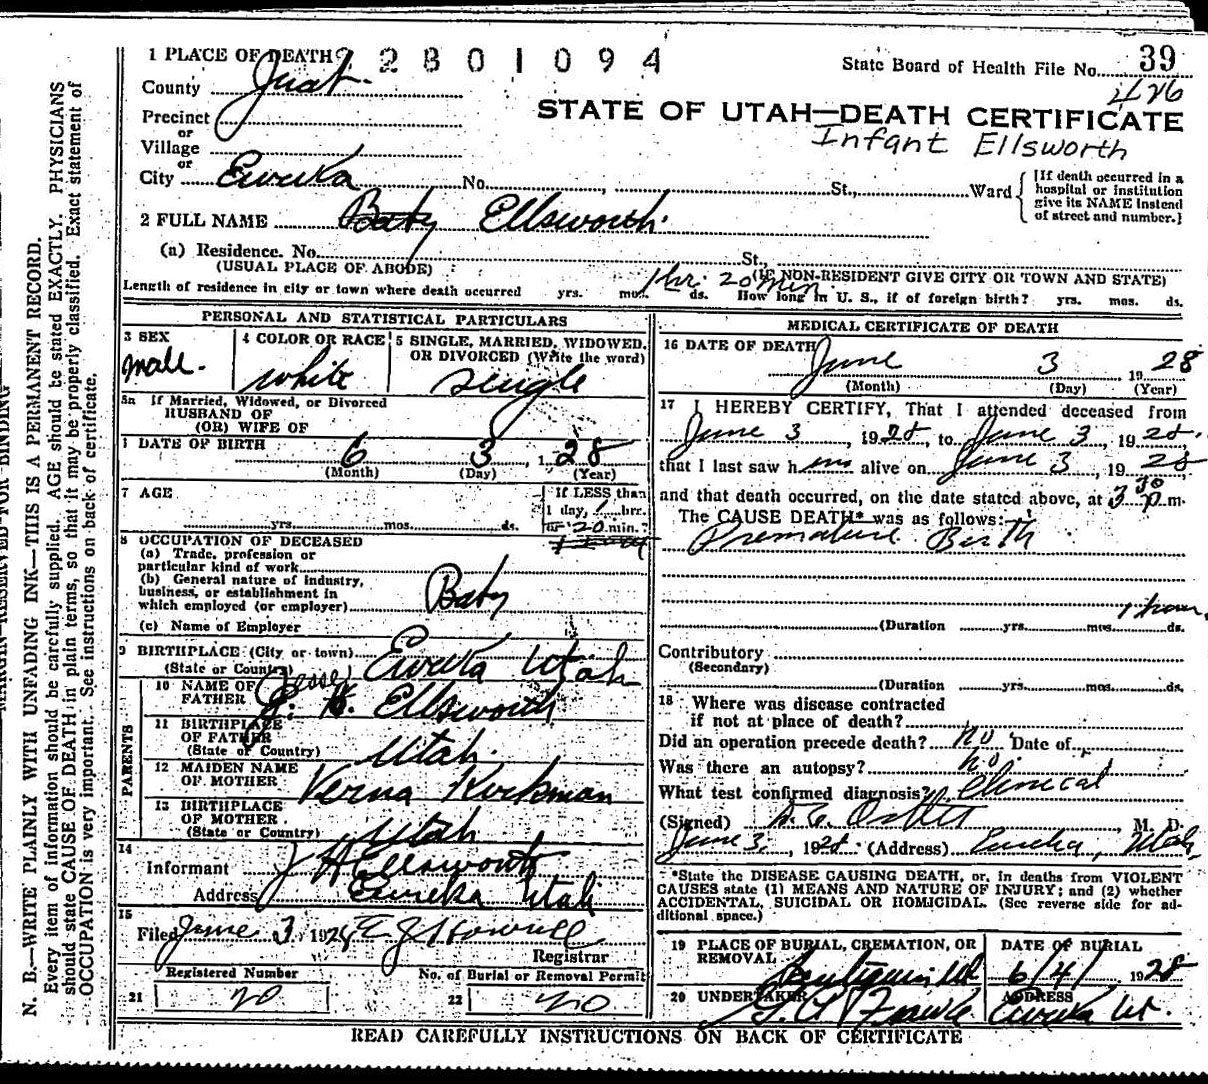 1 PLACE OF DEATH 2 2 8 0 1 0 9 4
State Board of Health File No. 39
426
County Juab
STATE OF UTAH—DEATH CERTIFICATE
Infant Ellsworth
Precinct
or
Village
or
City Eureka No. , St., Ward
[If death occurred in a
hospital or institution
give its NAME instead
of street and number.]
2 FULL NAME Baby Ellsworth
(a) Residence. No. St.,
(USUAL PLACE OF ABODE) (IF NON-RESIDENT GIVE CITY OR TOWN AND STATE)
1 hr. 20 min.
Length of residence in city or town where death occurred yrs. mos. ds. How long in U. S., if of foreign birth? yrs. mos. ds.
PERSONAL AND STATISTICAL PARTICULARS
3 SEX
male.
4 COLOR OR RACE
white
5 SINGLE, MARRIED, WIDOWED,
OR DIVORCED (Write the word)
single
5a If Married, Widowed, or Divorced
HUSBAND OF
(OR) WIFE OF
DATE OF BIRTH 6 3 , 1 28
(Month) (Day) (Year)
7 AGE
yrs. mos. ds.
If LESS than
1 day, 1 hrs.
or 20 min.?
8 OCCUPATION OF DECEASED
(a) Trade, profession or
particular kind of work
(b) General nature of industry,
business, or establishment in
which employed (or employer)
Baby
(c) Name of Employer
9 BIRTHPLACE (City or town) Eureka Utah
(State or Country)
PARENTS
10 NAME OF
FATHER
Jesse
J. H. Ellsworth
11 BIRTHPLACE
OF FATHER
(State or Country) Utah
12 MAIDEN NAME
OF MOTHER Verna
13 BIRTHPLACE
OF MOTHER
(State or Country) Utah
14
Informant J H Ellsworth
Address Eureka Utah
15
Filed June 3 1928 E J Howell
Registrar
Registered Number
21 20
No. of Burial or Removal Permit
22 20
MEDICAL CERTIFICATE OF DEATH
16 DATE OF DEATH June 3 , 19 28
(Month) (Day) (Year)
17 I HEREBY CERTIFY, That I attended deceased from
June 3 , 1928, to June 3 , 1928.
that I last saw him alive on June 3 , 1928
and that death occurred, on the date stated above, at 3 30 p.m.
The CAUSE DEATH* was as follows:
Premature Birth
1 hour
(Duration yrs. mos. ds.
Contributory
(Secondary)
(Duration yrs. mos. ds.
18 Where was disease contracted
if not at place of death?
Did an operation precede death? no Date of
Was there an autopsy? no
What test confirmed diagnosis? Clinical
(Signed) , M. D.
June 3, , 1928 (Address) Eureka, Utah,
*State the DISEASE CAUSING DEATH, or, in deaths from VIOLENT
CAUSES state (1) MEANS AND NATURE OF INJURY; and (2) whether
ACCIDENTAL, SUICIDAL OR HOMICIDAL. (See reverse side for ad-
ditional space.)
19 PLACE OF BURIAL, CREMATION, OR
REMOVAL
DATE OF BURIAL
6/4/ 1928
20 UNDERTAKER
ADDRESS
Eureka Ut.
READ CAREFULLY INSTRUCTIONS ON BACK OF CERTIFICATE
MARGIN RESERVED FOR BINDING
N. B.—WRITE PLAINLY WITH UNFADING INK—THIS IS A PERMANENT RECORD.
Every item of information should be carefully supplied. AGE should be stated EXACTLY. PHYSICIANS
should state CAUSE OF DEATH in plain terms, so that it may be properly classified. Exact statement of
OCCUPATION is very important. See instructions on back of certificate.